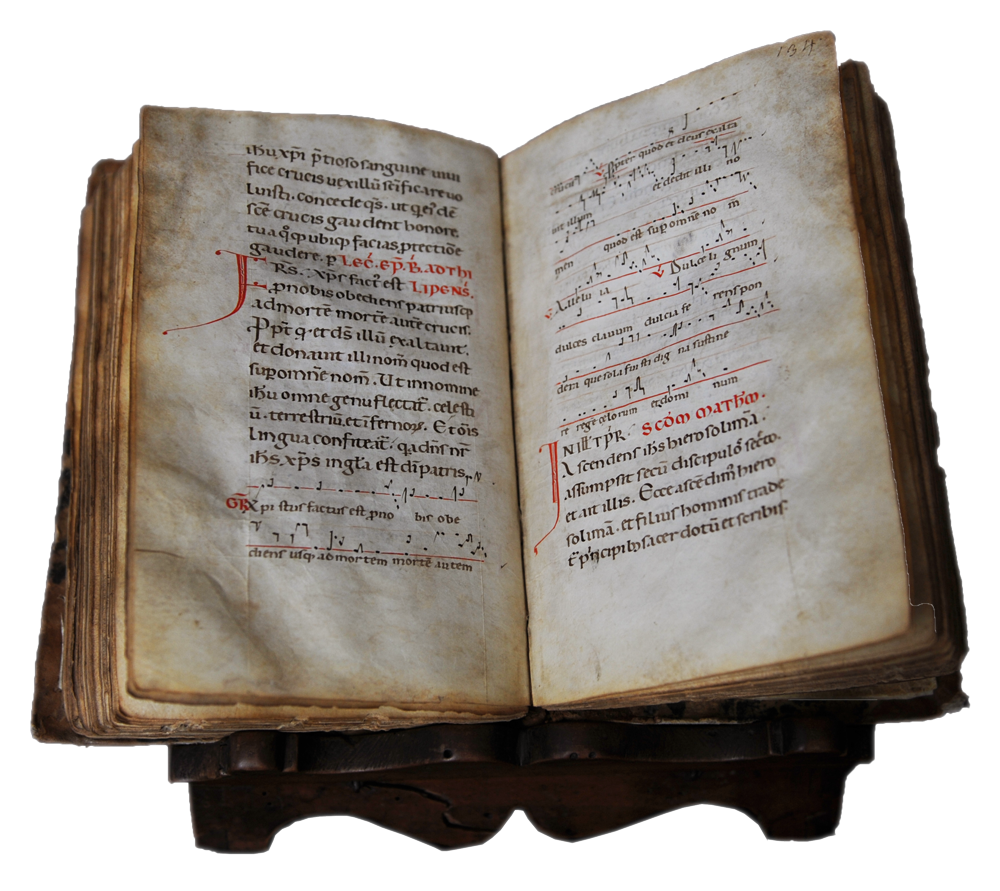 ihu xpi p̄tioso sanguine uiui
fice crucis uexillū sc̄ificare uo
luisti. concede qs. ut q̇ ei dē
sc̄e crucis gaudent honore
tua q̊q ubiq facias ptectiōe
gaudere. p LEC̄. EP̄. B. AD THI
FRS. Xps fact̄ est LIPENS̄.
p nobis obediens patri usq
ad mortē mortē autē crucis.
Ppt̄ q. et ds̄ illū exaltauit.
et donauit illi nom̄ quod est
suꝑ omne nom̄. Ut in nomine
ihu omne genu flectat̄. celesti
ū. terrestriū. et īfernoꝝ. Et ōis
lingua confiteat̄. q̇a dns̄ nr̄
ihs. xps in gl̄a est dī patris.
GR̄ Xpi stus factus est pro no bis obe
diens usq. ad mortem mortē autem
134
crucis ℣ ppter quod et deus exalta
uit illum et dedit illi no
men quod est suꝑ omne no m̄
Alleluia ℣ Dulce lignum
dulces clauum dulcia fe rens pon
dera que sola fuisti dig na sustine
re rege celorum et domi num
IN ILL̄ TP̄R. SCDM MATHM̄.
Ascendens ihs hierosolimā.
assumpsit secū discipulos̄ secto.
et ait illis. Ecce ascēdim̄ hiero
solimā. et filius hominis trade
t̄ p̄ncipibꝫ sacerdotū et scribis.